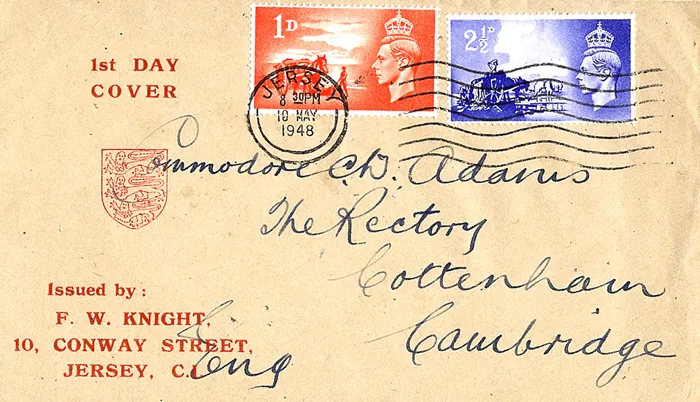 1st DAY
COVER
1D
2½D
JERSEY
8 30PM
10 MAY
1948
Commodore Ch. Adams
The Rectory
Cottenham
Cambridge
Eng
Issued by:
F. W. KNIGHT,
10, CONWAY STREET,
JERSEY, C.I.